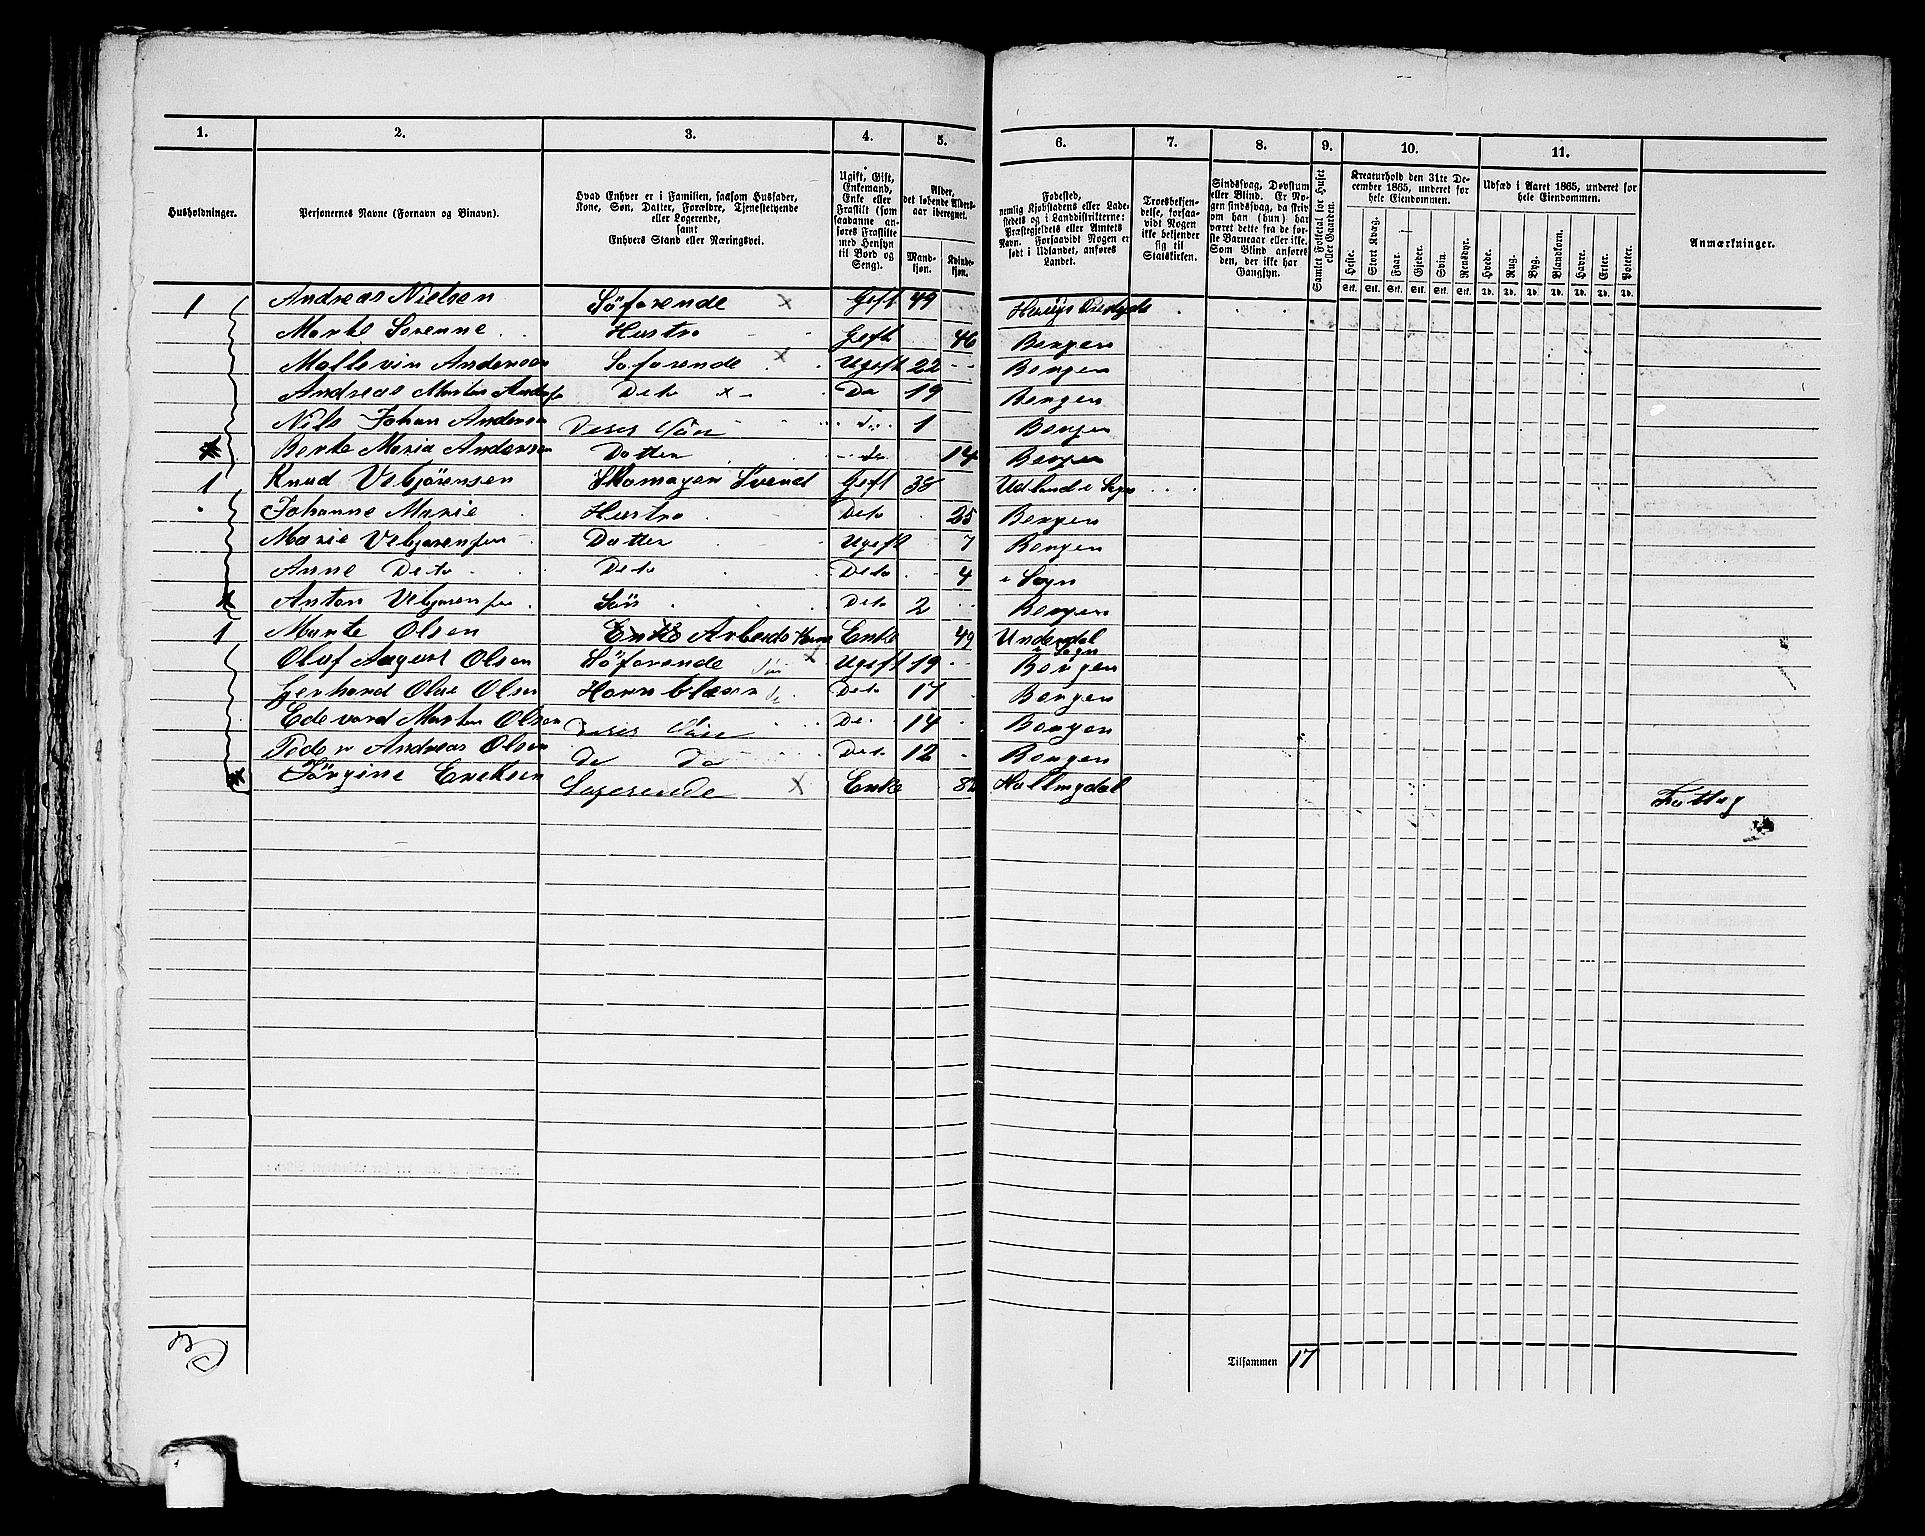 1. 2. 3. 4. 5. 6. 7. 8. 9. 10. 11.
Husholdninger.
Personernes Navne (Fornavn og Binavn).
Hvad Enhver er i Familien, saasom Husfader, Kone, Søn, Datter, Forældre, Tjenestetyende eller Logerende, samt Enhvers Stand eller Næringsvei.
Ugift, Gift, Enkemand, Enke eller Fraskilt (som saadanne anføres Fraskilte med Hensyn til Bord og Seng).
Alder, det løbende Aldersaar iberegnet.
Mandkjøn. Kvindekjøn.
Fødested, nemlig Kjøbstadens eller Ladestedets og i Landdistrikterne: Præstegjeldets eller Amtets Navn. Forsaavidt Nogen er født i Udlandet, anføres Landet.
Troesbekjendelse, forsaavidt Nogen ikke bekjender sig til Statskirken.
Sindssvag, Døvstum eller Blind. Er Nogen sindssvag, da skrives om han (hun) har været dette fra de første Barneaar eller ikke. Som Blind anføres den, der ikke har Gangsyn.
Samlet Folketal for Huset eller Gaarden.
Kreaturhold den 31te December 1865, underet for hele Eiendommen.
Heste. Stort Kvæg. Faar. Gjeder. Svin. Rensdyr.
Udsæd i Aaret 1865, underet for hele Eiendommen.
Hvede. Rug. Byg. Blandkorn. Havre. Erter. Poteter.
Anmærkninger.
Stk. Stk. Stk. Stk. Stk. Stk. Td. Td. Td. Td. Td. Td. Td.
1 Andreas Nielsen Søfarende x Gift 49
Marte Serenne Hustro Geft 46 Bergen
Andersen Søfarende x Ugeft 22 Bergen
Andreas Martin Deto x Do 19 Bergen
Nils Johan Andersen Deres Søn do 1 Bergen
Berte Maria Andersen Datter do 14 Bergen
1 Knud Vebjørensen Skomager Svend Geft 38 Udland i Sogn
Johanne Marie Hustro Deto 25 Bergen
Marie Vebjørensen Datter Ugeft 7 Bergen
Anne Deto Deto Deto 4 i Sogn
Anton Vebjørensen Søn Deto 2 Bergen
1 Marte Olsen Enke Arbeids Kone Enke 49 Underdal i Sogn
Oluf August Olsen Søfarende Søn x Ugeft 19 Bergen
Gerhard Olae Olsen Hornblæser do Deto 17 Bergen
Edevard Martin Olsen Deres Søn De 14 Bergen
Peder Andreas Olsen do do Deto 12 Bergen
Jørgine Ereksen Logerende x Enke Hallingdal Fattig
Tilsammen 17